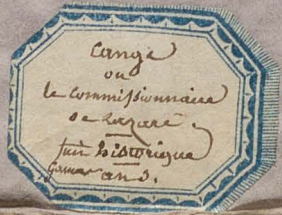 Cange
ou
le commissionnaire
de Lazare
fait historique
an 3.